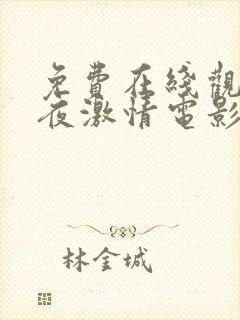 免費在綫觀
夜激情電影
林金城